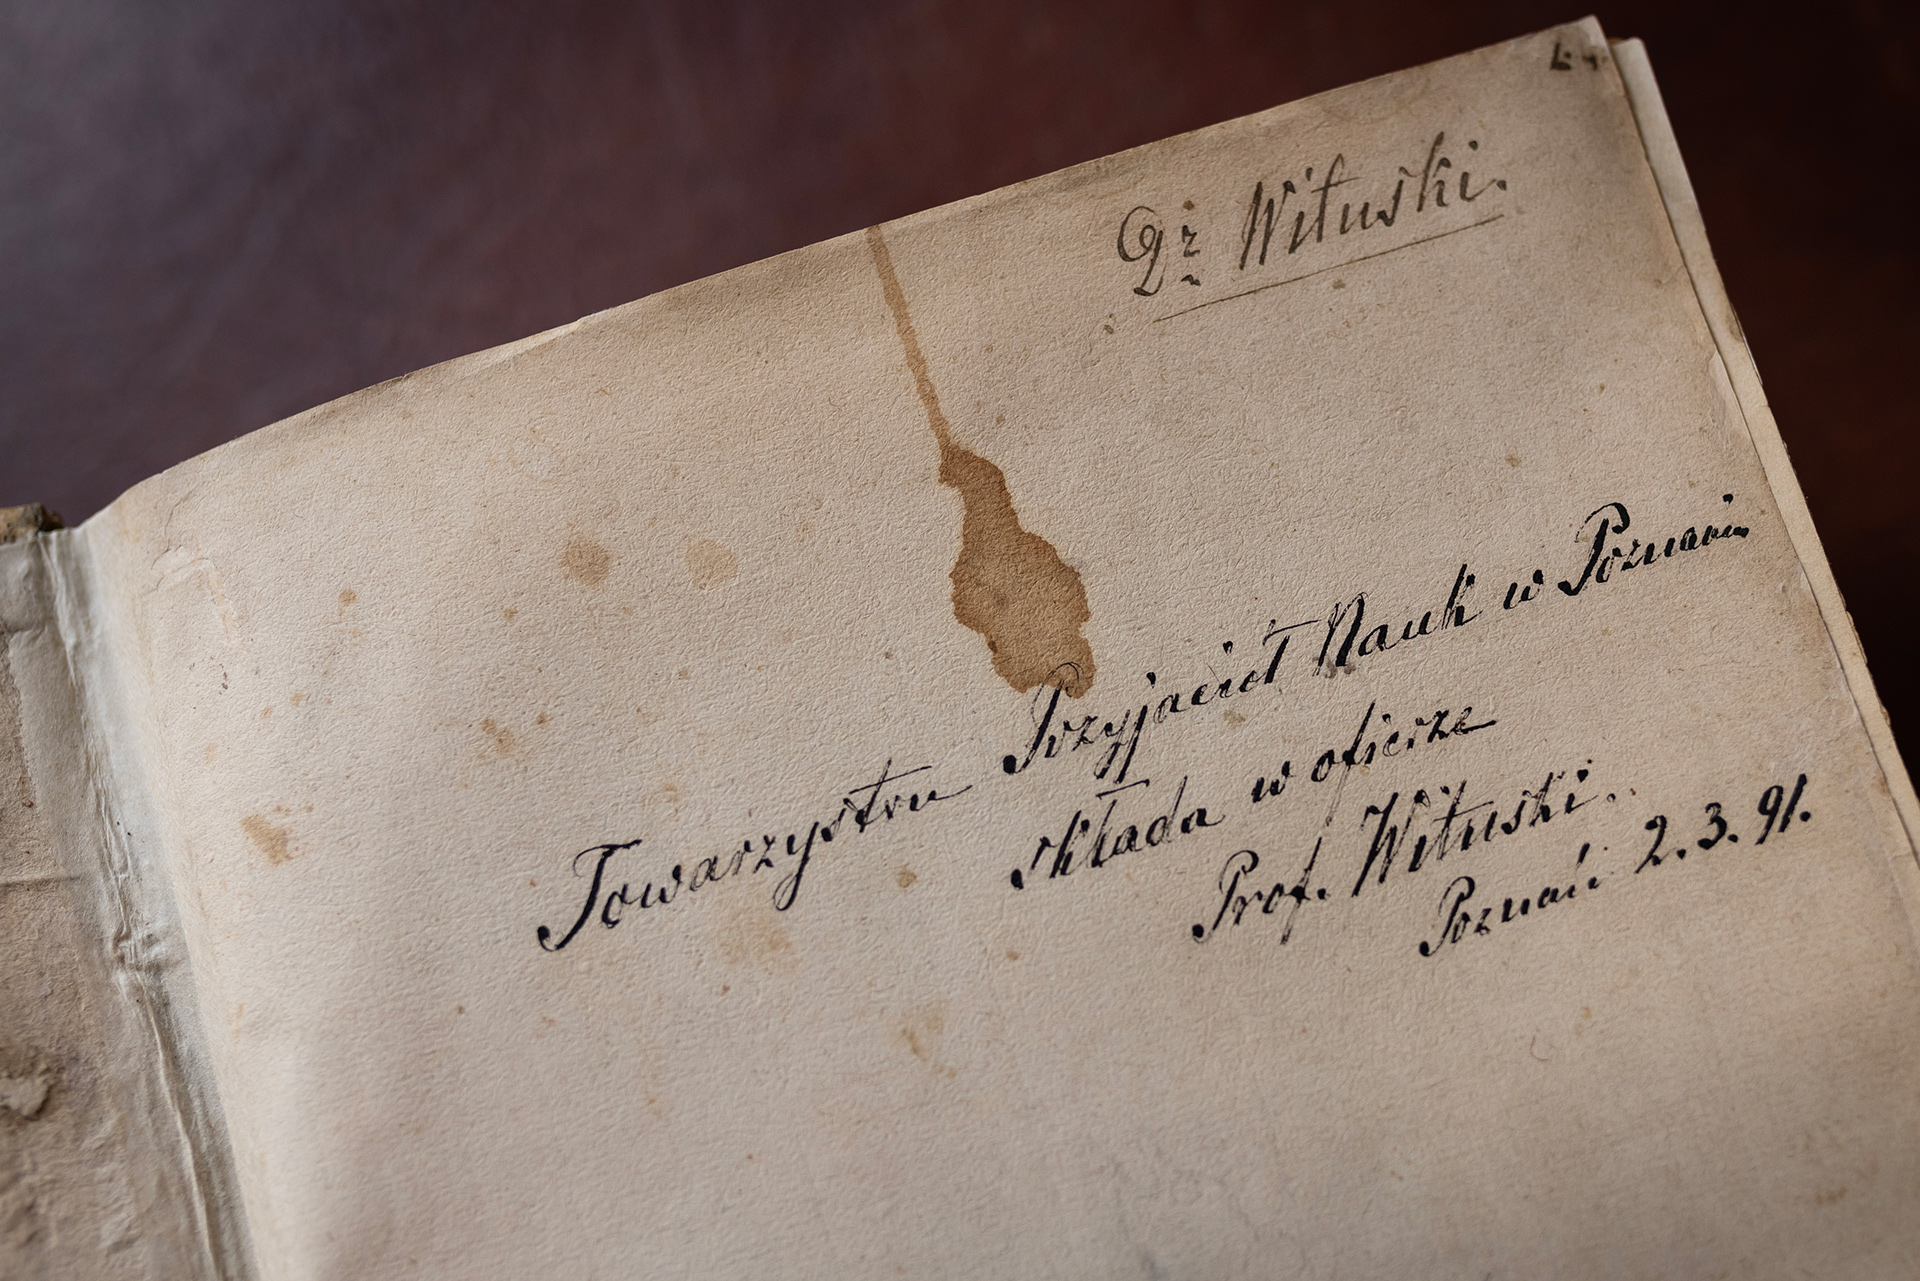 Dr Wituski.
Towarzystwu Przyjaciół Nauk w Poznaniu
składa w ofierze
Prof. Wituski.
Poznań 2.3.91.